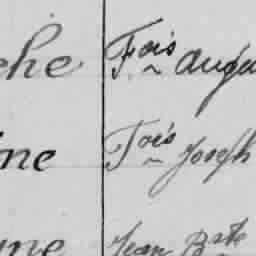 che Fois Augu
ine Fois Joseph
me Jean Bste